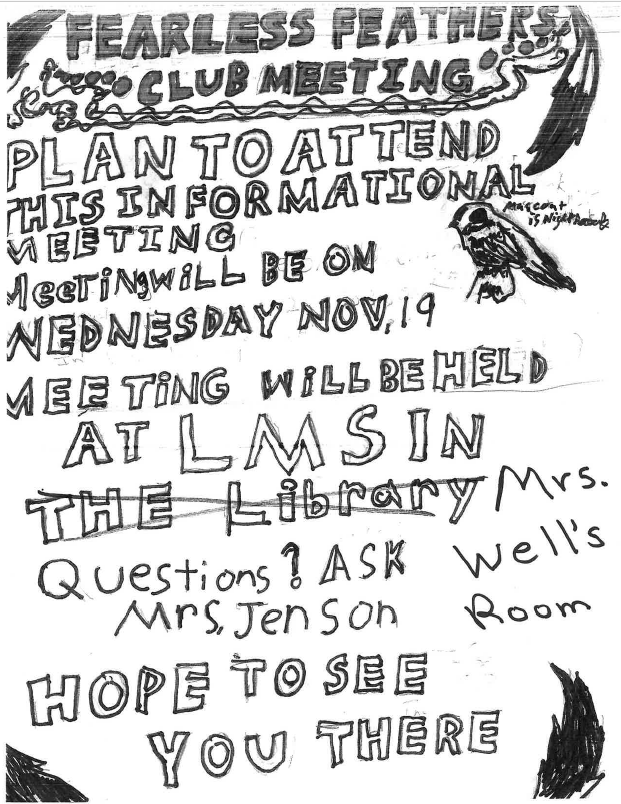 FEARLESS FEATHERS
CLUB MEETING
PLAN TO ATTEND
THIS INFORMATIONAL
Mascot
is Night
MEETING
MeeTiNg WiLL BE ON
WEDNESDAY NOV, 19
MEETiNG WiLL BE HELD
AT LMS IN
THE Library Mrs.
Well's
Room
Questions? ASK
Mrs. Jenson
HOPE TO SEE
YOU THERE